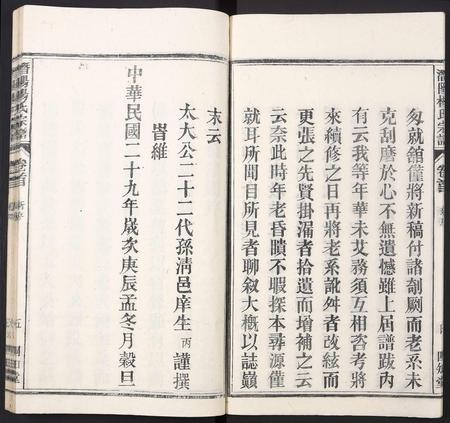 潛陽楊氏宗譜
卷首
匆就舘僅將新稿付諸剞劂而老系未
克刮磨於心不無遺憾雖上屆譜跋內
有云我等年華未艾務須互相咨考將
來續修之日再將老系訛舛者改絃而
更張之先賢掛漏者拾遺而增補之云
云奈此時年老昏瞶不暇探本尋源僅
就耳所聞目所見者聊叙大概以誌巔
末云
太大公二十二代孫清邑庠生丙 謹撰
晋維
中華民國二十九年歲次庚辰孟冬月穀旦
楊氏宗譜
卷首